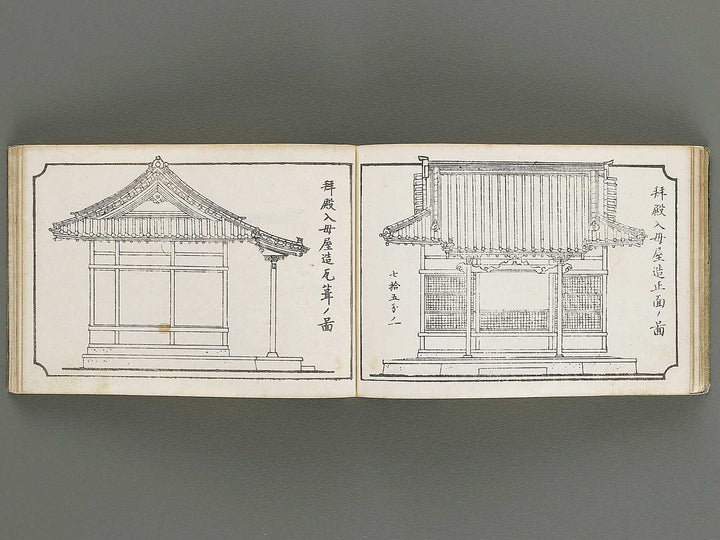 拜殿入母屋造正面ノ圖
七拾五分ノ一
拜殿入母屋造瓦葺ノ圖